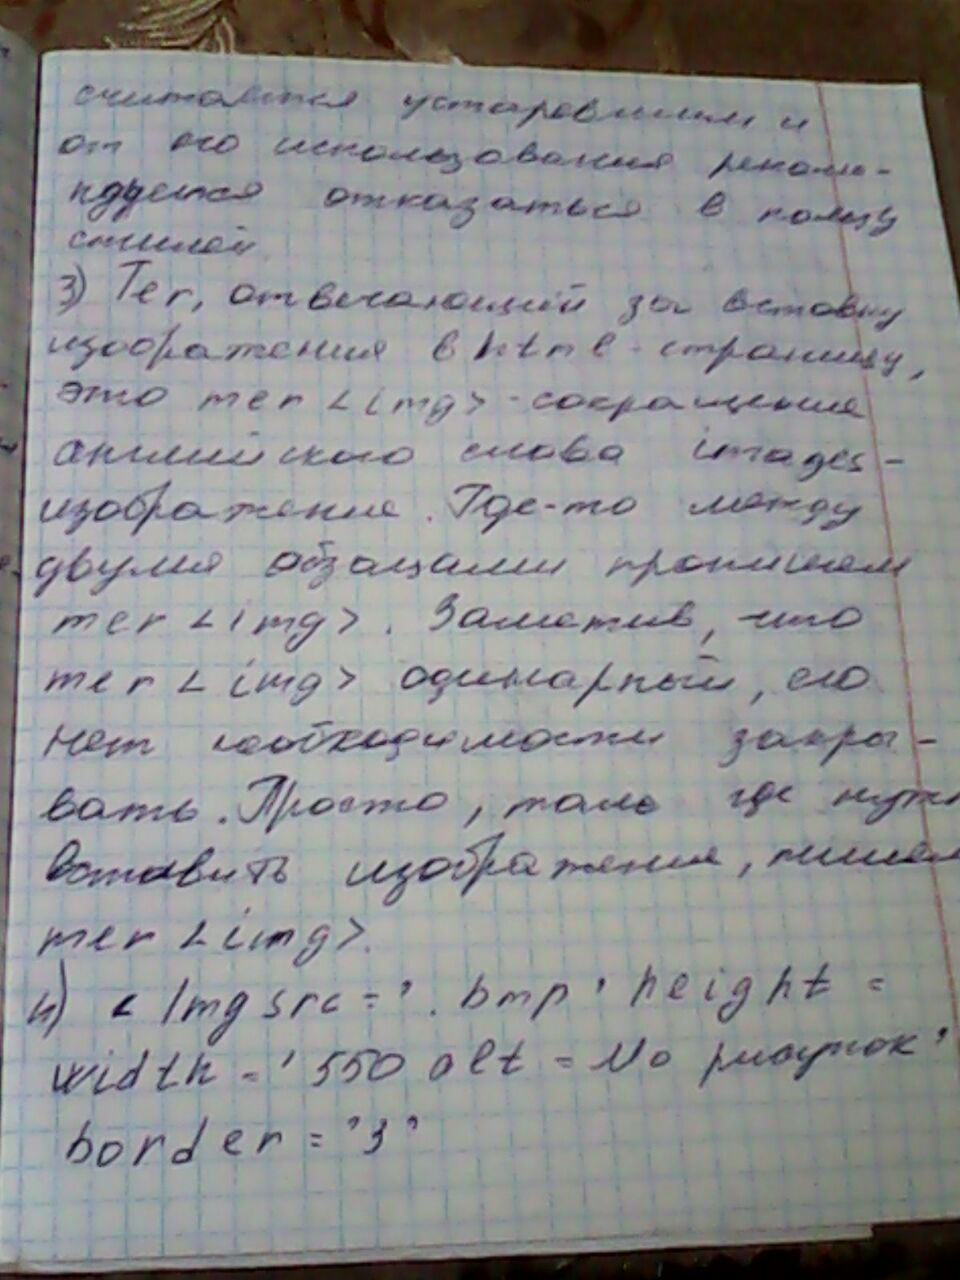 считается устаревшим и
от его использования рекоме-
ндуется отказаться в пользу
стилей.
3) Тег, отвечающий за вставку
изображения в html-страницу,
это тег <img> - сокращение
английского слова images-
изображение. Где-то между
двумя абзацами пропишем
тег <img>. Заметив, что
тег <img> одинарный, его
нет необходимости закры-
вать. Просто, там где нужно
вставить изображение, пишем
тег <img>.
4) < Img src = '. bmp' height =
width = '550 alt = No рисунок'
border = '3'